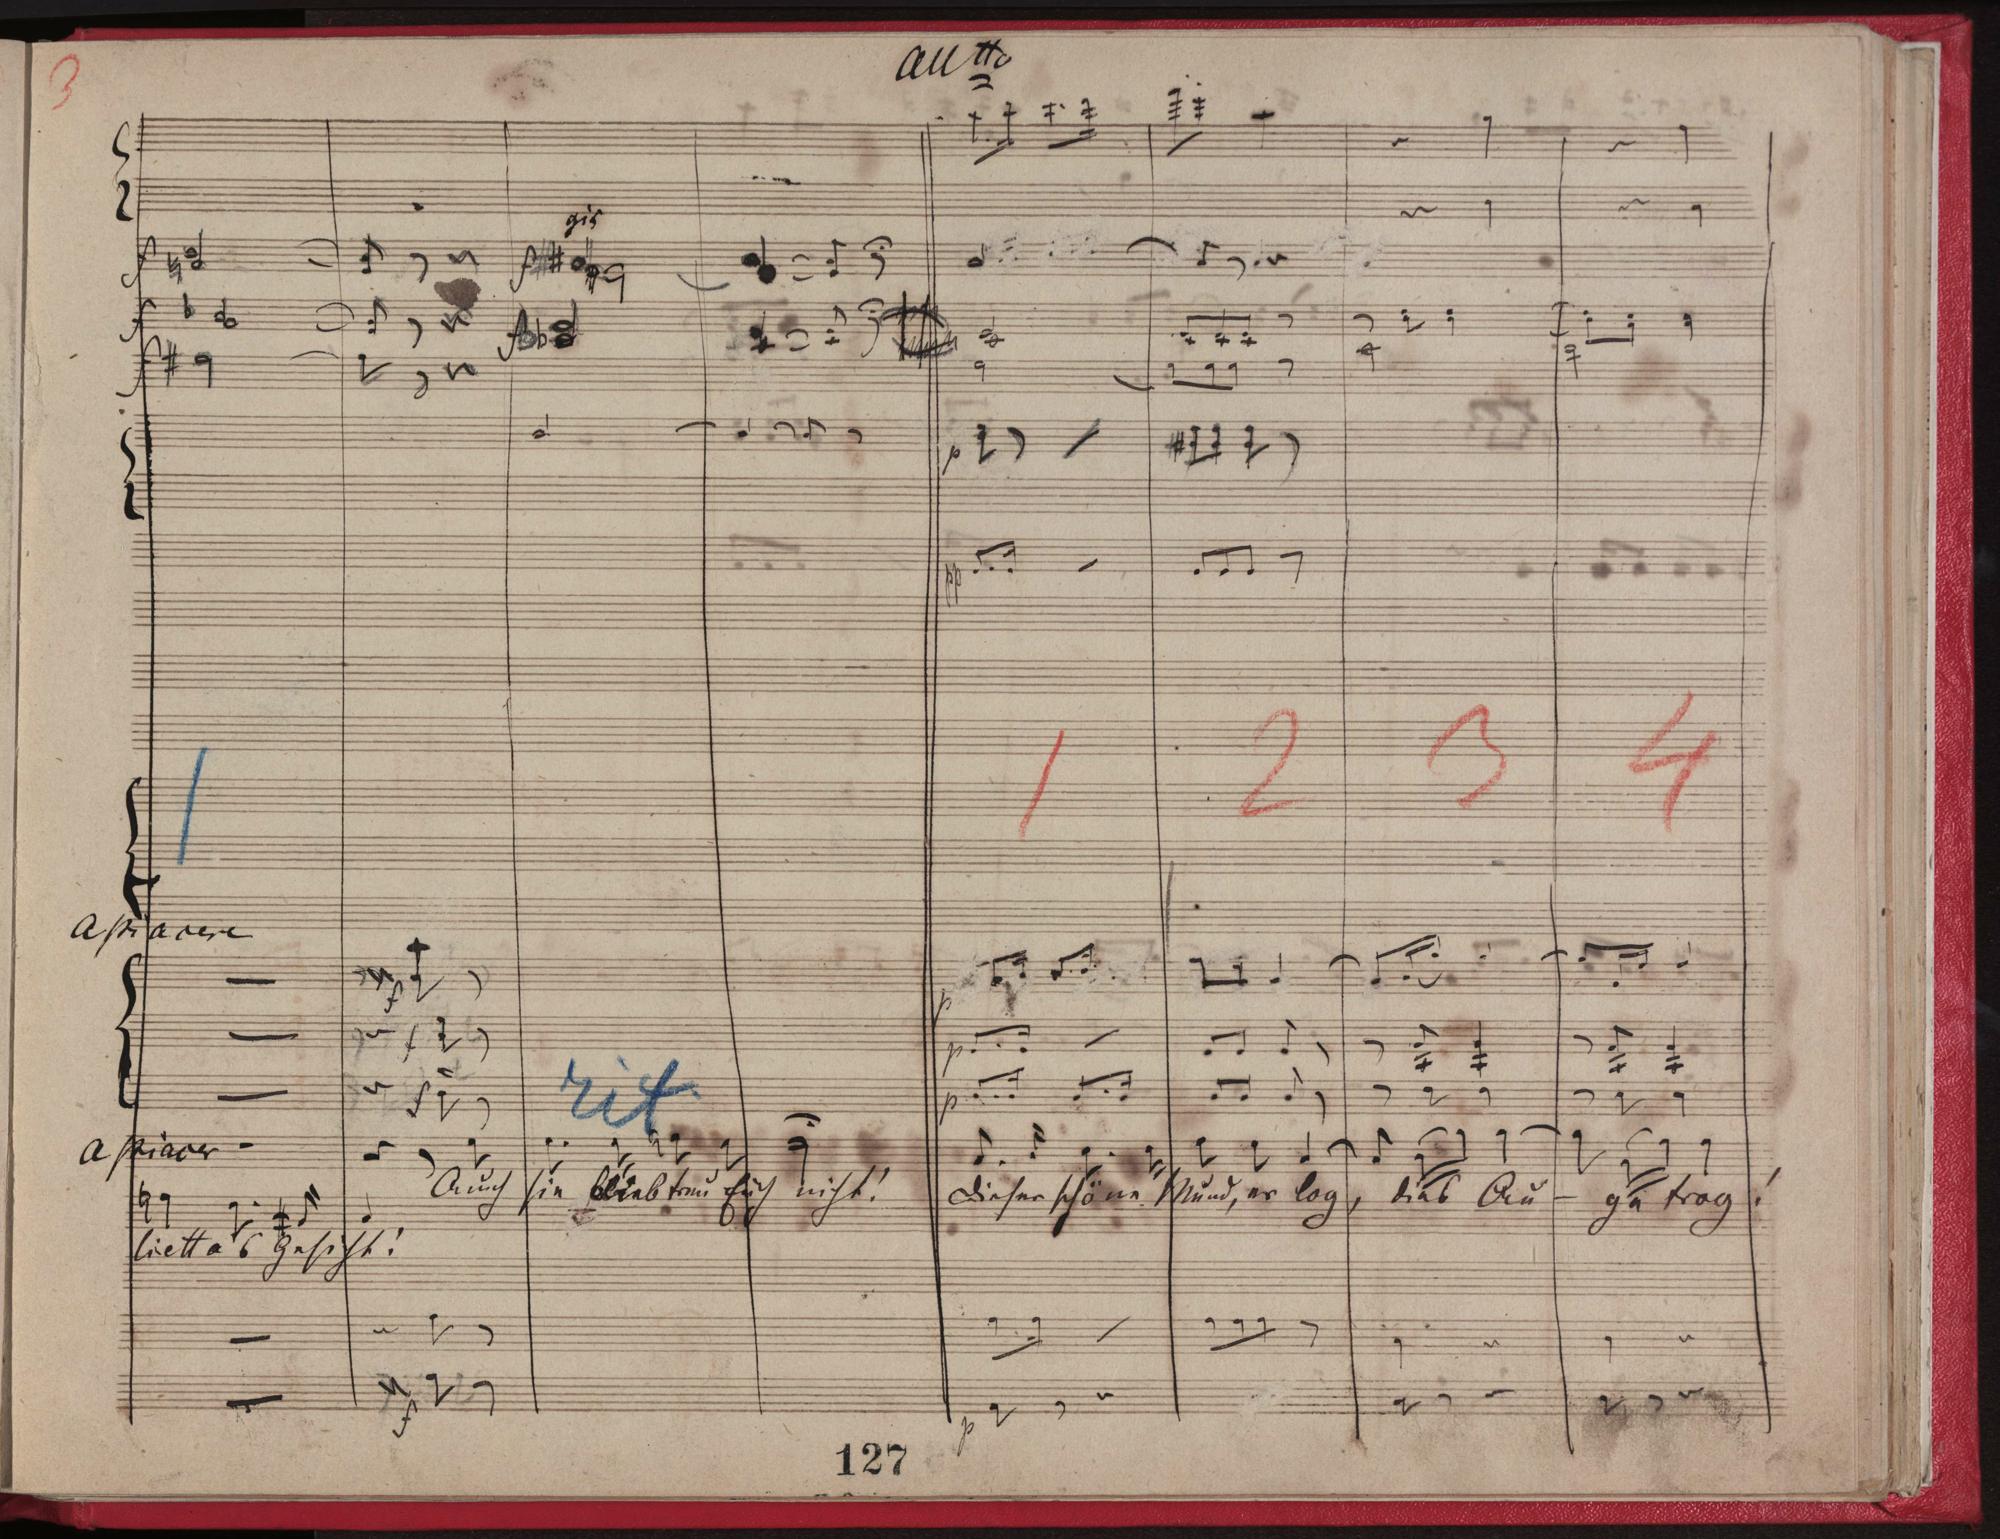 3
All tto
gis
f
f
f
p
pp
1
1 2 3 4
a piacere
f
p
f
p
f
p
rit
a piacer -
Auch sie blieb treu Euch nicht! Dieser schöne Mund, er log, dies Au - ge trog!
lietta's Gesicht!
f
p
127